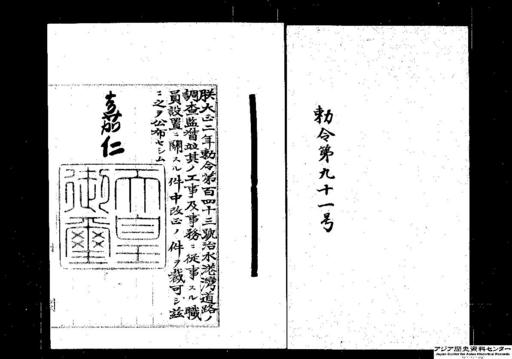 勅令第九十一号
朕大正二年勅令第百四十三號治水港湾道路ノ
調査監督並其ノ工事及事務ニ從事スル職
員設置ニ關スル件中改正ノ件ヲ裁可シ茲
ニ之ヲ公布セシム
嘉仁
天皇
御璽
アジア歴史資料センター
Japan Center for Asian Historical Records